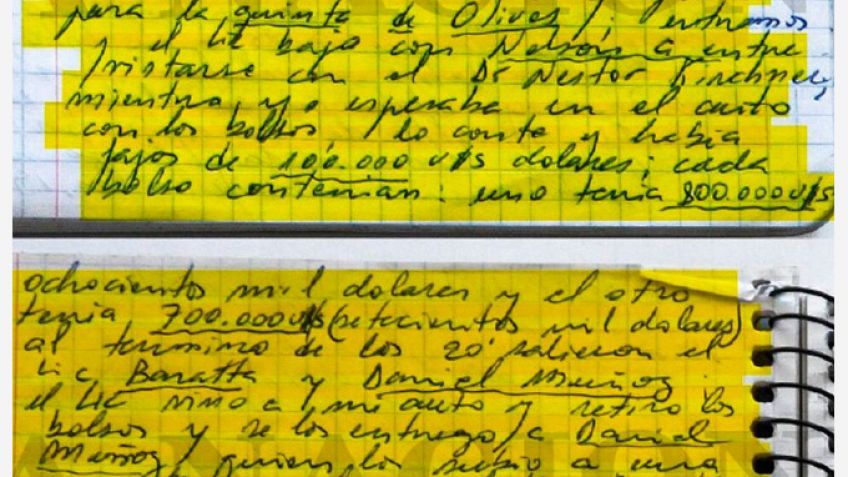 para la quinta de Olivos /; entramos
y el Lic bajo con Nelson a entre
/vistarse con el Dr Nestor Kirchner,
mientras yo esperaba en el auto
con los bolsos, / lo conte y habia
fajos de 100.000 u/s dolares; cada
bolso contenian: uno tenia 800.000 u/s
ochocientos mil dolares y el otro
tenia 700.000 u/s (setecientos mil dolares)
al termino de los 20' salieron el
Lic Baratta y Daniel Muñoz.
el Lic vino a mi auto y retiro los
bolsos y se los entrego / a Daniel
Muñoz, quien los subio a una